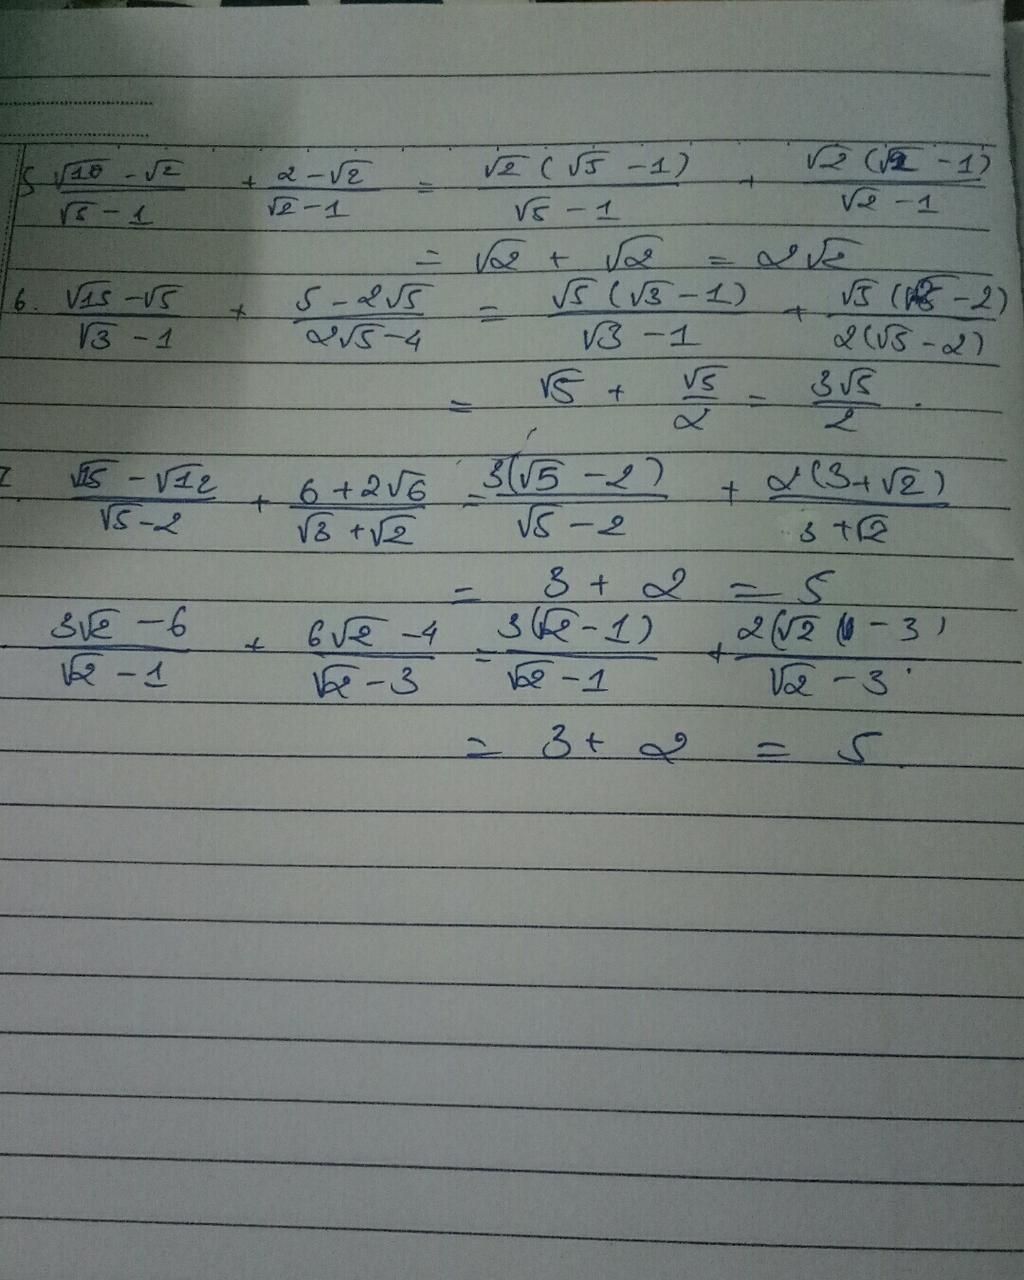 5 √10 - √2 / √5 - 1 + 2 - √2 / √2 - 1 = √2 ( √5 - 1 ) / √5 - 1 + √2 ( √2 - 1 ) / √2 - 1
= √2 + √2 = 2√2
6. √15 - √5 / √3 - 1 + 5 - 2√5 / 2√5 - 4 = √5 ( √3 - 1 ) / √3 - 1 + √5 ( √5 - 2 ) / 2(√5 - 2)
= √5 + √5 / 2 = 3√5 / 2 .
7. √15 - √12 / √5 - 2 + 6 + 2√6 / √3 + √2 = 3(√5 - 2) / √5 - 2 + 2(3 + √2) / 3 + √2
= 3 + 2 = 5
3√2 - 6 / √2 - 1 + 6√2 - 4 / √2 - 3 = 3(√2 - 1) / √2 - 1 + 2(√2 ( - 3 ) / √2 - 3 .
= 3 + 2 = 5